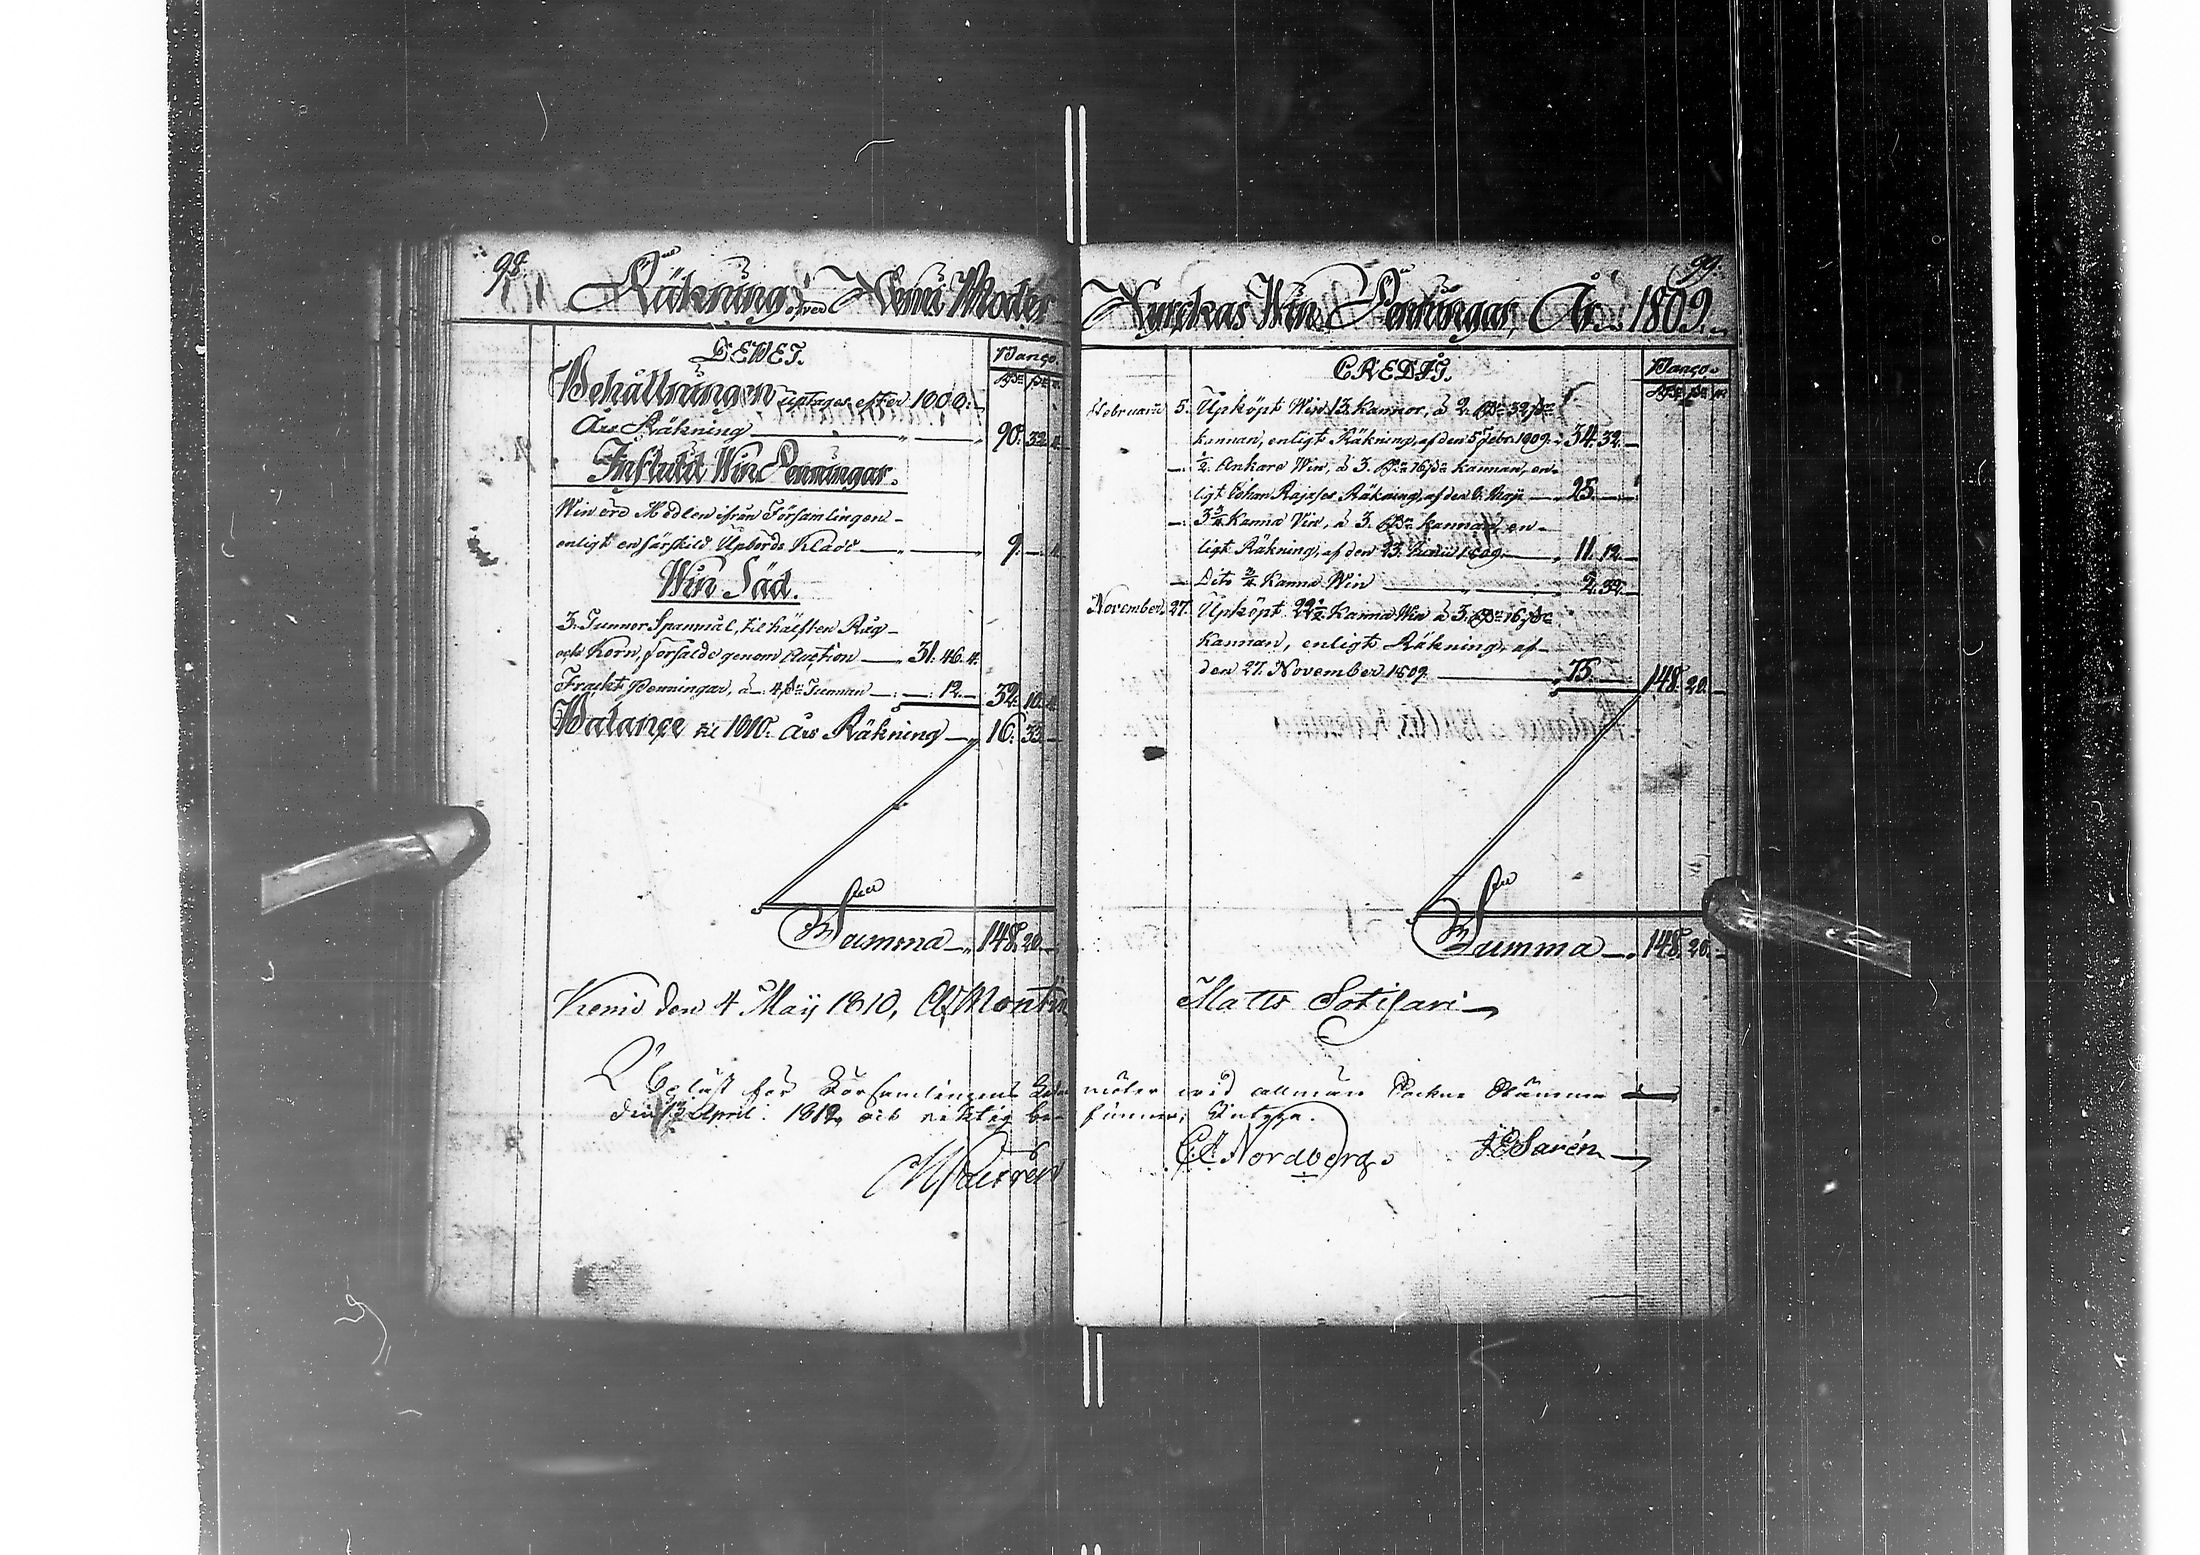 98.
Räkning öfver Kemi Moder
DEBET.
Banco
Behållningen uptages efter 1808.
Års Räkning 90. 32. 4.
Influtit Win Penningar.
Win öre Medlen ifrån Församlingen
enligt en särskild Upbörds Kladd 9. — 4.
Win Säd.
3. Tunnor Spanmål, til hälften Råg
och Korn, försålde genom Auction 31. 46. 4.
Frackt Penningar, à 4 ß Tunnan — 12. — 32. 10. 4.
Balance til 1810. Års Räkning 16. 33. —
Summa 148. 20. —
Kemi den 4 Maij 1810,
Upläst för Församlingens
den 13 April 1812, och riktig be-
99.
Kyrckas Win Penningar, År 1809.
CREDIT.
Banco.
Februarii 5. Upköpt Win 13. Kannor, à 2. Rd 32 ß
kannan, enligt Räkning, af den 5 Febr. 1809. 34. 32. —
— ½. Ankare Win, à 3. Rd 16 ß kannan, en-
ligt Johan Räkning, af den 6. Maji 25. —
— 3¾ Kanna Vin, à 3. Rd kannan, en-
ligt Räkning, af den 23. 1809. 11. 12. —
— Dito ¾ Kanna Win 2. 32. —
November. 27. Upköpt 22½ Kanna Win à 3. Rd 16 ß
Kannan, enligt Räkning, af
den 27. November 1809 75. — 148. 20. —
Summa 148. 20. —
Matts Sotisari
möter wid allmän Sockne Stämma
funnen, Intyga.
Nordberg. J E Sarén